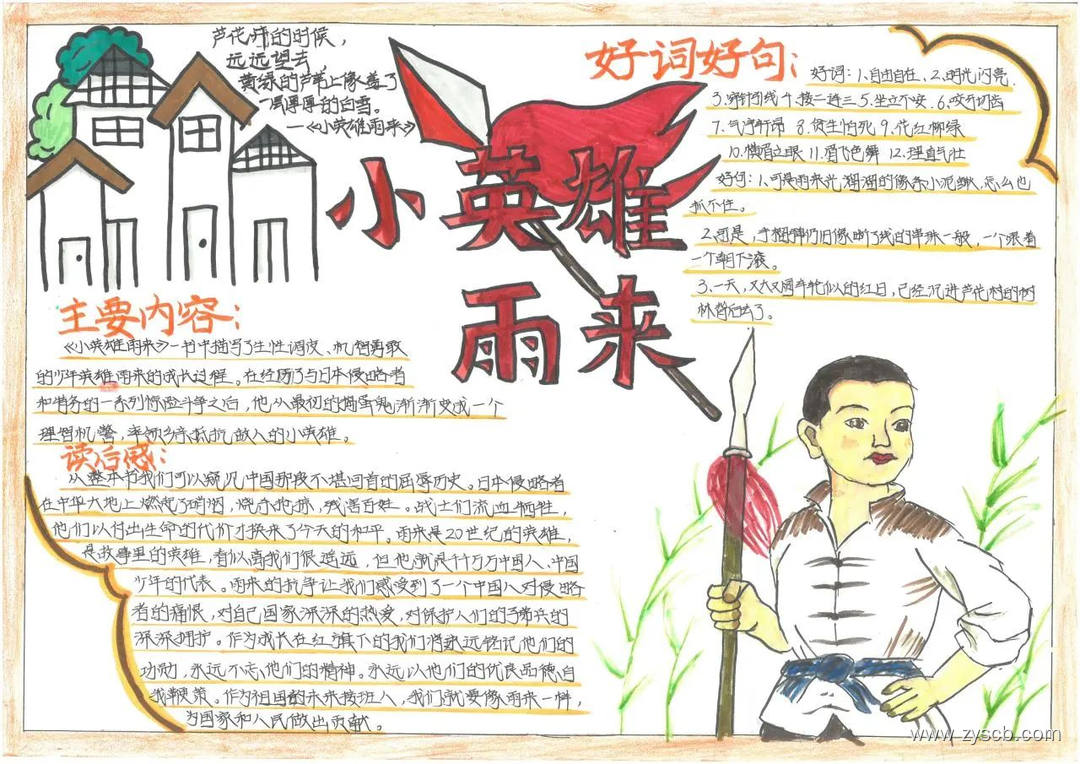 芦花开的时候，
远远望去，
黄绿的芦苇上像盖了
一层厚厚的白雪。
—《小英雄雨来》
小英雄
雨来
好词好句：
好词：1、自由自在、2、明光闪亮
3、穿针引线 4、接二连三 5、坐立不安 6、咬牙切齿
7、气宇轩昂 8、贪生怕死 9、花红柳绿
10、横眉立眼 11、眉飞色舞 12、理直气壮
好句：1、可是雨来光溜溜的像条小泥鳅，怎么也
抓不住。
2、可是，手榴弹仍旧像断了线的串珠一般，一个跟着
一个朝下滚。
3、一天，又大又圆的红日，已经沉进芦花村的树
林背后去了。
主要内容：
《小英雄雨来》一书中描写了生性调皮、机智勇敢
的少年英雄雨来的成长过程。在经历了与日本侵略者
和特务的一系列惊险斗争之后，他从最初的捣蛋鬼渐渐变成一个
理智机警，率领乡亲抵抗敌人的小英雄。
读后感：
从整本书我们可以窥见中国那段不堪回首的屈辱历史。日本侵略者
在中华大地上燃起了硝烟，烧杀抢掠，残害百姓。战士们流血牺牲，
他们以付出生命的代价才换来了今天的和平。雨来是20世纪的英雄，
是故事里的英雄，看似离我们很遥远，但他就是千千万万中国人、中国
少年的代表。雨来的抗争让我们感受到了一个中国人对侵略
者的痛恨，对自己国家深深的热爱，对保护人们的子弟兵的
深深拥护。作为成长在红旗下的我们将永远铭记他们的
功勋，永远不忘他们的精神。永远以他们的优良品德自
我鞭策。作为祖国的未来接班人，我们就要像雨来一样，
为国家和人民做出贡献。
www.zyscb.com